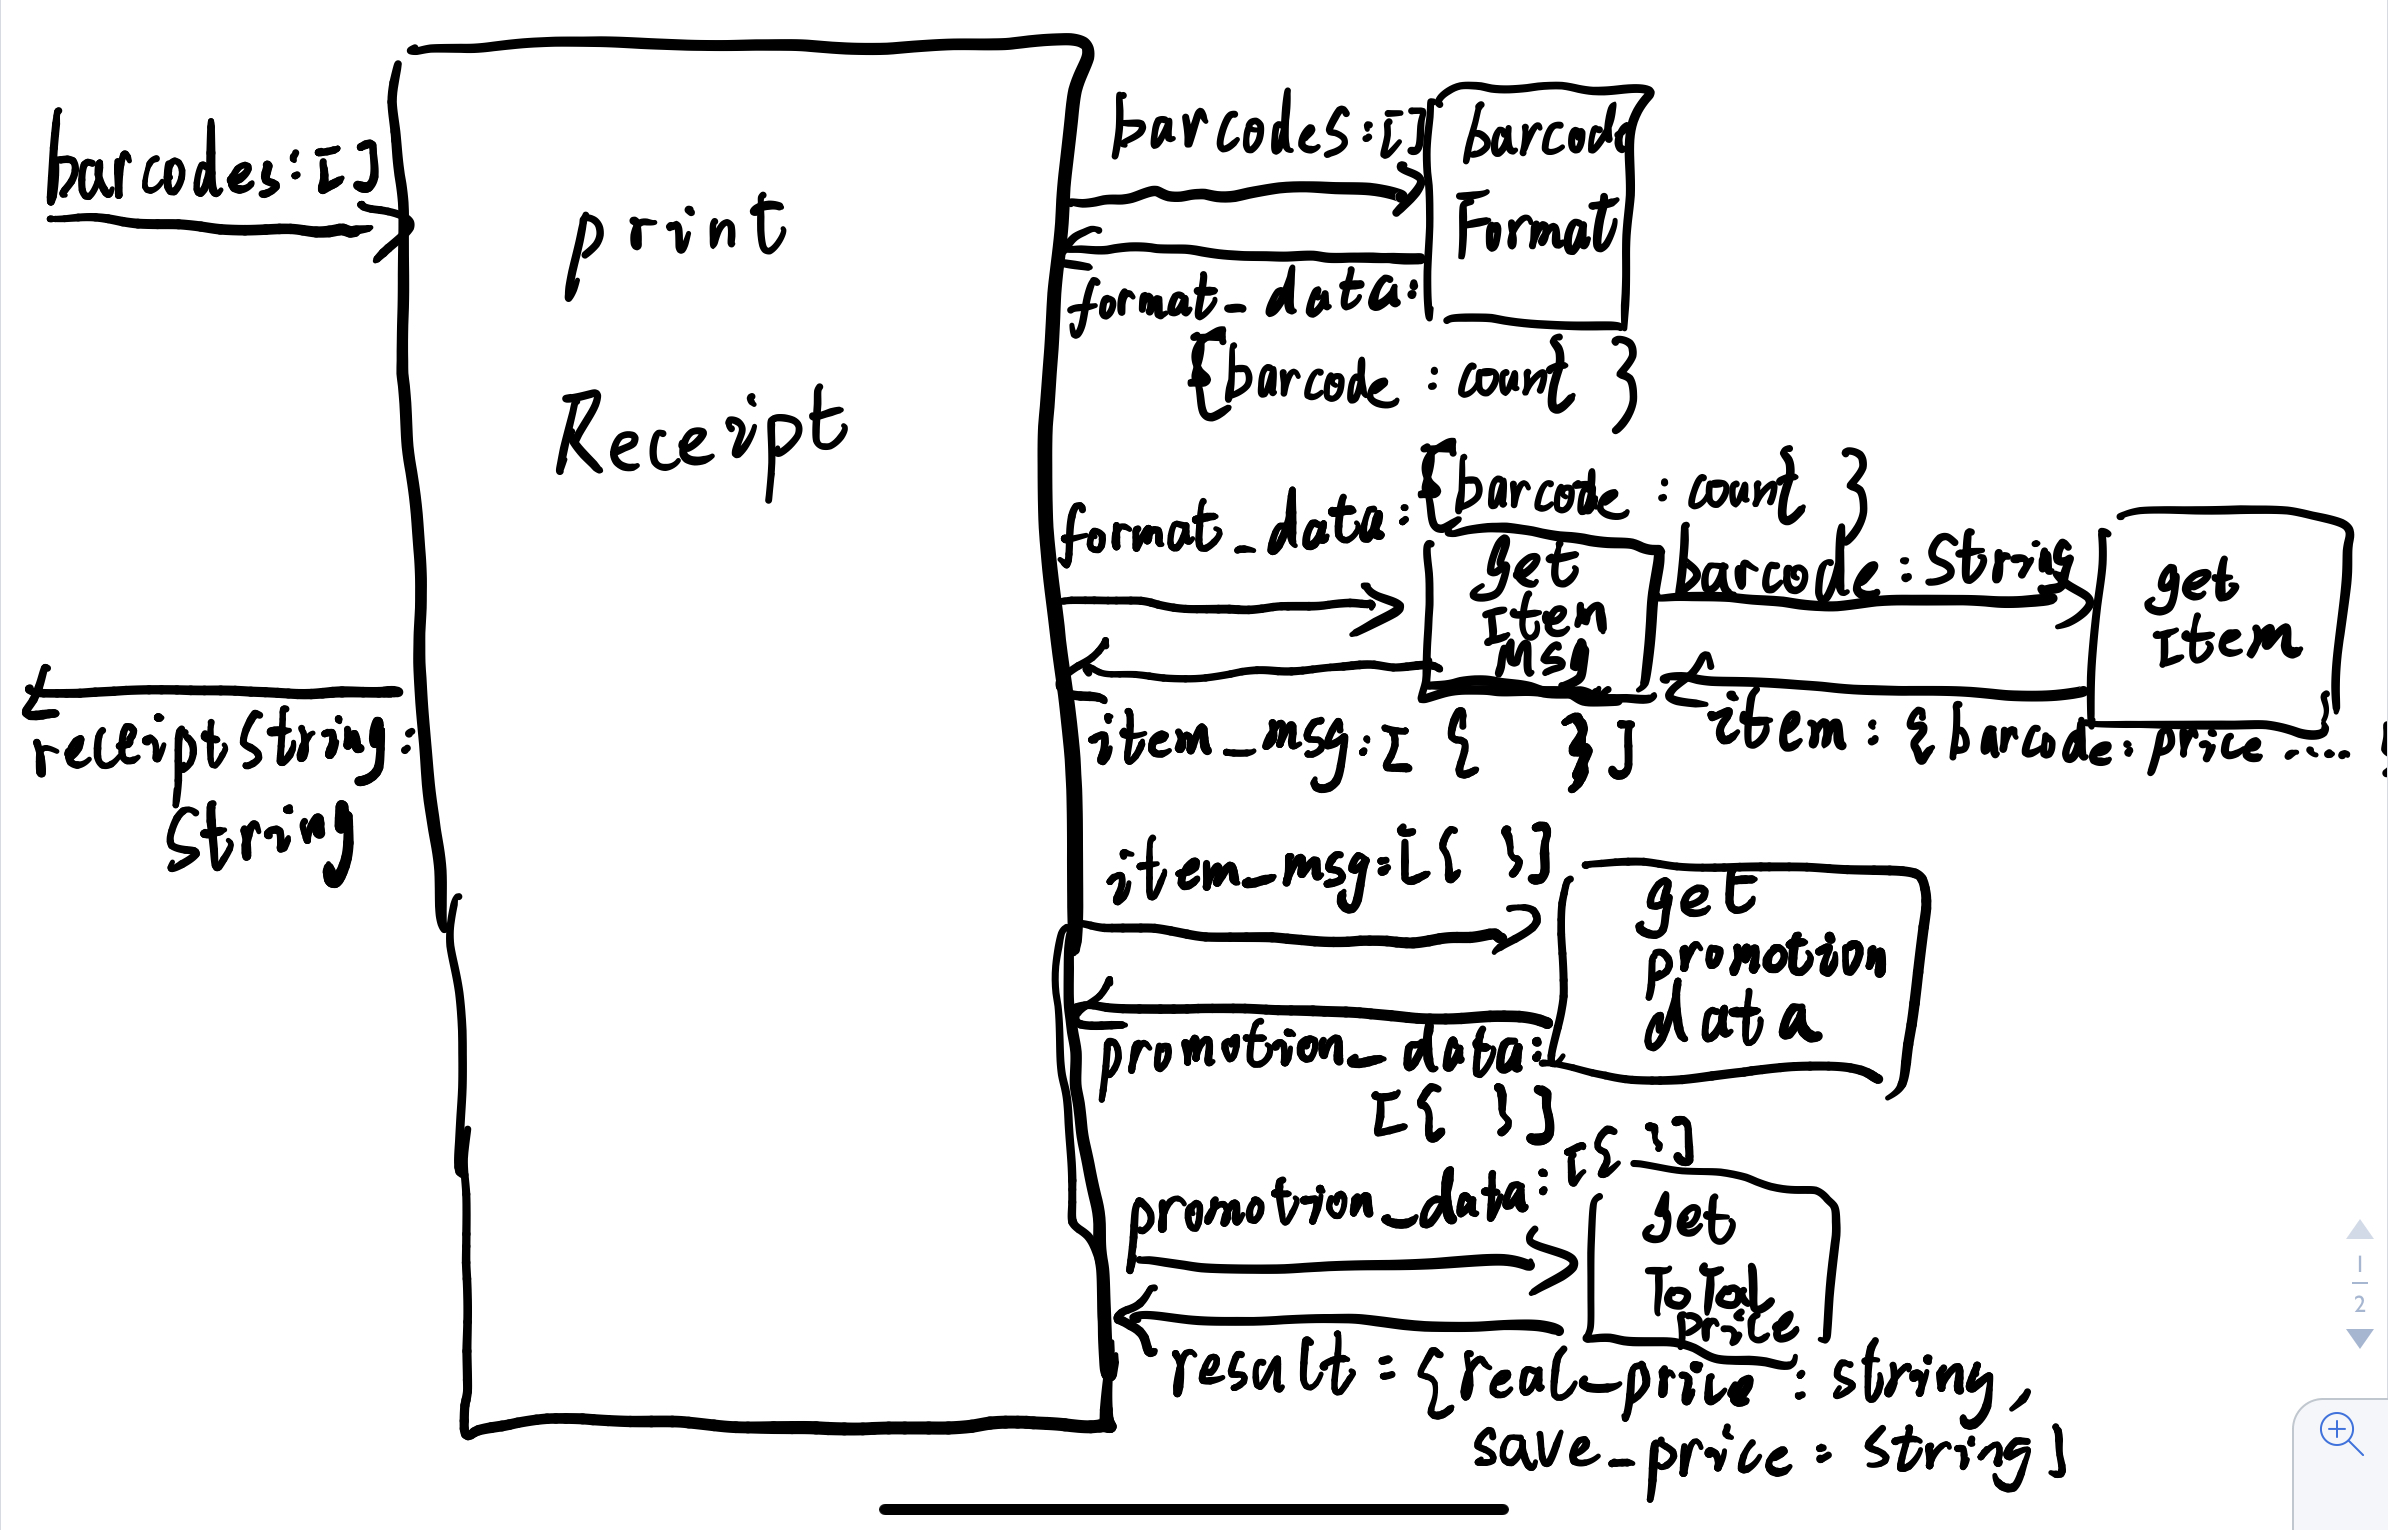 barcodes:[]
print
Receipt
receiptString:
String
barcodes:[]
barcode
Format
format_data:
{barcode : count }
format_data:{barcode : count }
get
Item
Msg
barcode:String
get
Item
item_msg:[ { }]
item: {barcode:price.....
item_msg:[{ }]
get
promotion
data
promotion_data:
[{ }]
promotion_data:[{ }]
get
ToTal
price
result = {real_price : string,
save_price : string}
1
2